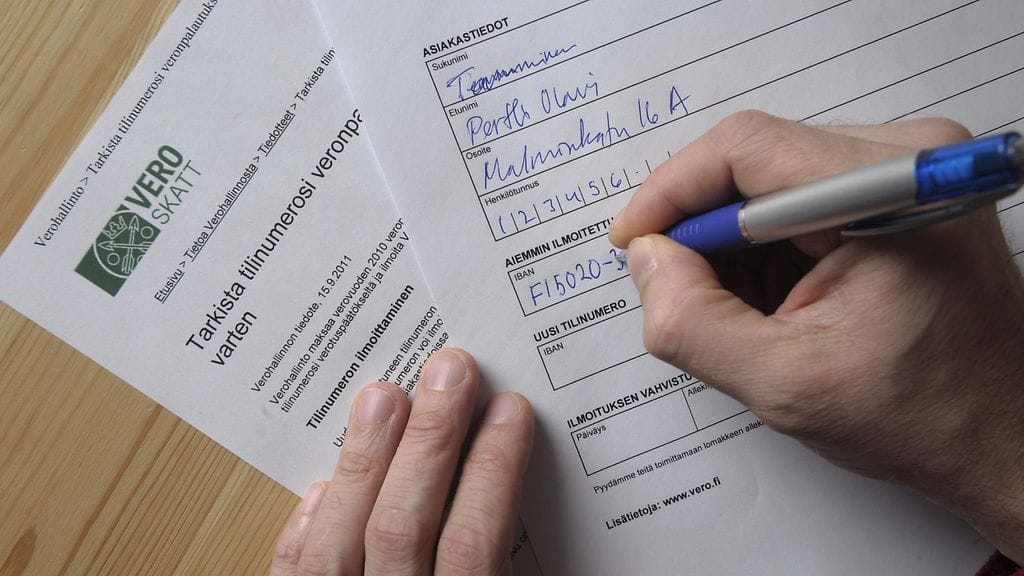 Verohallinto > Tarkista tilinumerosi veronpalautuks
VERO
SKATT
Etusivu > Tietoa Verohallinnosta > Tiedotteet > Tarkista tilin
Tarkista tilinumerosi veronpa
varten
Verohallinnon tiedote, 15.9.2011
Verohallinto maksaa verovuoden 2010 veron
tilinumerosi verotuspäätökseltä ja ilmoita V
Tilinumeron ilmoittaminen
ASIAKASTIEDOT
Sukunimi
Etunimi
Pertti Olavi
Osoite
Malminkatu 16 A
Henkilötunnus
1 2 3 4 5 6 -
AIEMMIN ILMOITETTU
IBAN
FI5020-3
UUSI TILINUMERO
IBAN
ILMOITUKSEN VAHVISTU
Päiväys
Allekir
Pyydämme teitä toimittamaan lomakkeen allek
Lisätietoja: www.vero.fi